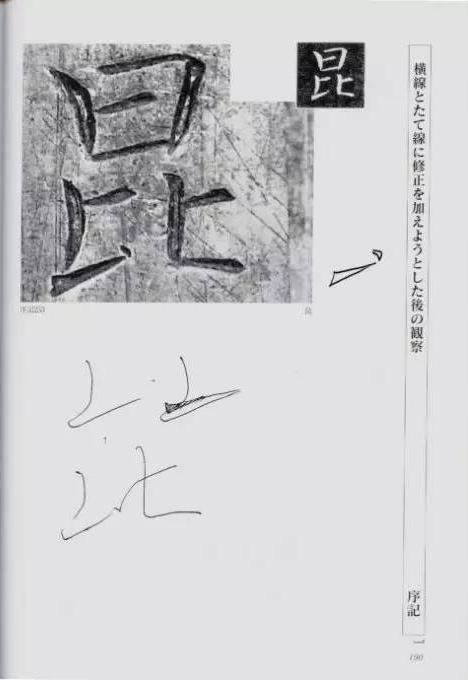 横線とたて線に修正を加えようとした後の観察
昆
昆
昆
序記
一
190